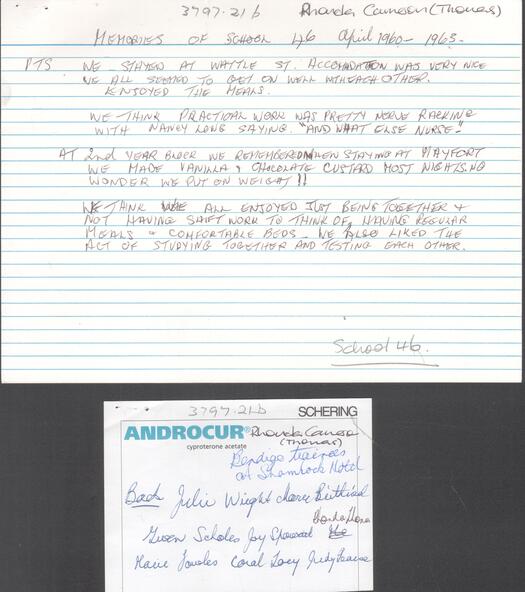 3797.21b Rhonda Cameron (Thomas)
MEMORIES OF SCHOOL 46 April 1960 - 1963-
PTS WE STAYED AT WATTLE ST. ACCOMADATION WAS VERY NICE
WE ALL SEEMED TO GET ON WELL WITH EACH OTHER.
ENJOYED THE MEALS.
WE THINK PRACTICAL WORK WAS PRETTY NERVE RACKING
WITH NANCY LONG SAYING. "AND WHAT ELSE NURSE."
AT 2nd YEAR BLOCK WE REMEMBERED WHEN STAYING AT MAYFORT
WE MADE VANILLA & CHOCOLATE CUSTARD MOST NIGHTS. NO
WONDER WE PUT ON WEIGHT !!
WE THINK WE ALL ENJOYED JUST BEING TOGETHER &
NOT HAVING SHIFT WORK TO THINK OF, HAVING REGULAR
MEALS & COMFORTABLE BEDS - WE ALSO LIKED THE
ACT OF STUDYING TOGETHER AND TESTING EACH OTHER.
School 46.
3797.21b SCHERING
ANDROCUR® Rhonda Cameron
cyproterone acetate (Thomas)
Bendigo trainees
at Shamrock Hotel
Back Julie Wright
Rhonda
Gwen Scholes Joy
Coral Judy